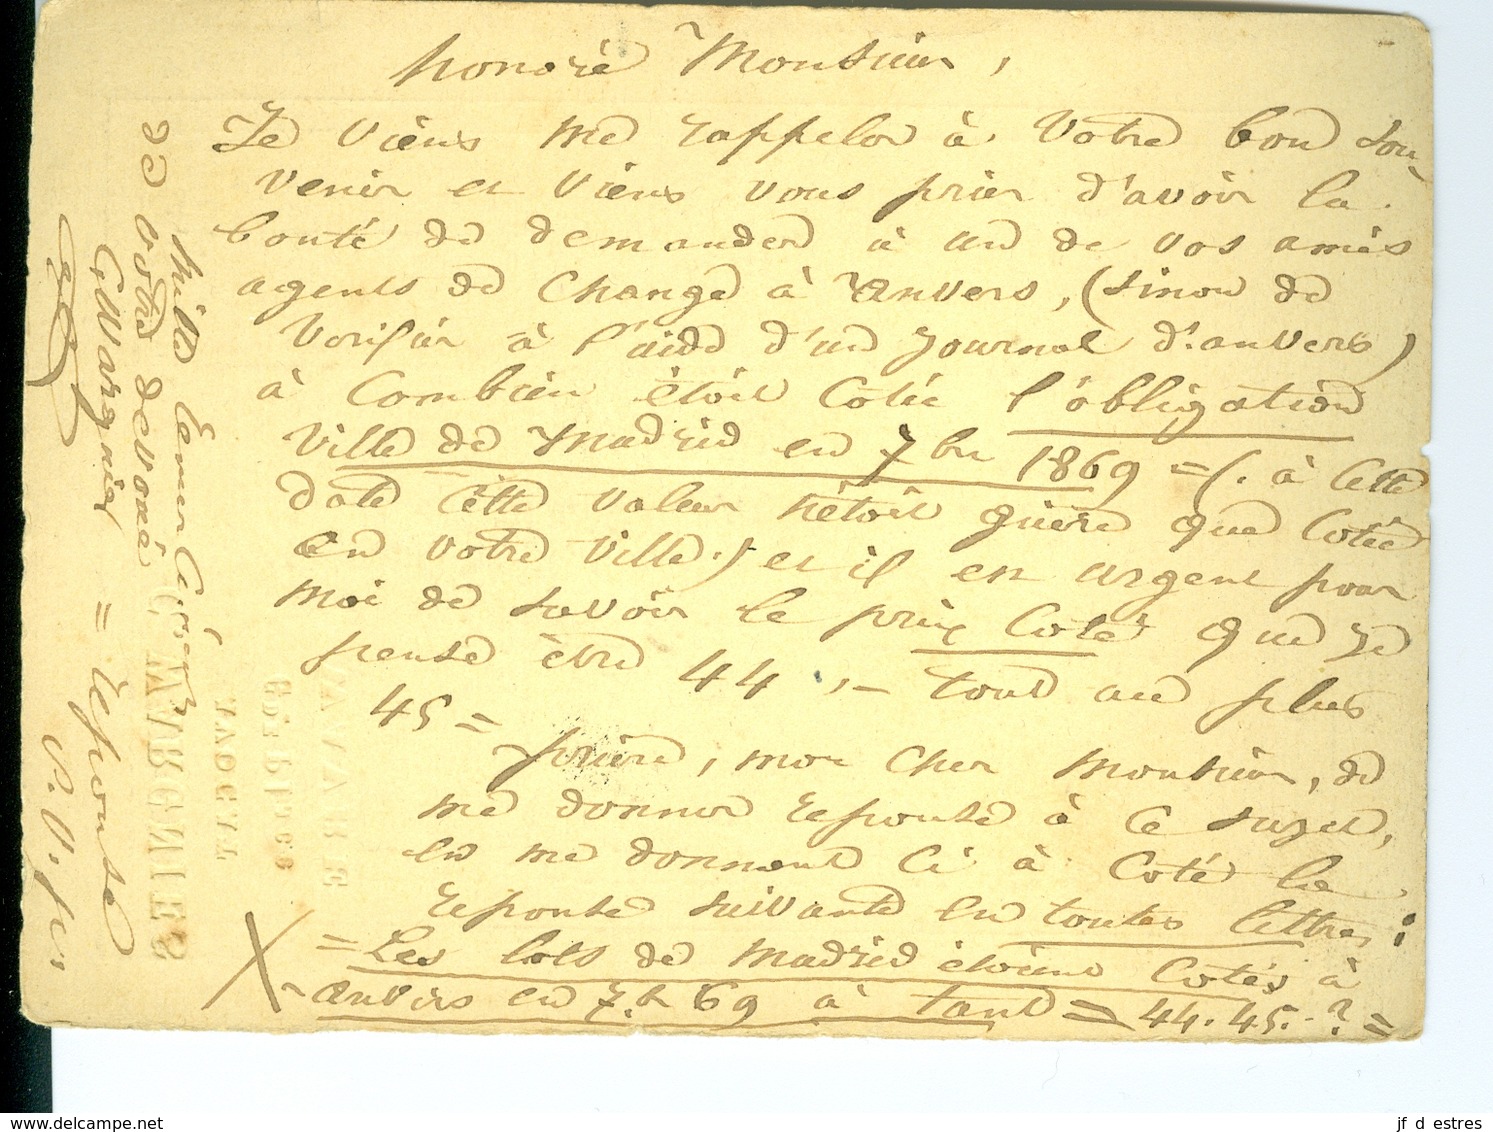 honoré Monsieur,
Je viens me rappeler à votre bon sou-
venir et viens vous prier d'avoir la
bonté de demander à un de vos amis
agents de Change à Anvers, (sinon de
vérifier à l'aide d'un journal d'anvers)
à Combien étoit Cotée l'obligation
Ville de Madrid en 7bre 1869 = (. à Cette
date Cette valeur n'étoit guère que Cotée
en votre Ville) et il est urgent pour
moi de savoir le prix Coté que je
pense être 44,- tout au plus
45 =
prière, mon Cher Monsieur, de
me donner reponse à Ce sujet,
en me donnant Ci à Coté la
reponse suivante en toutes lettres:
= Les lots de Madrid étoient Cotés à
anvers en 7.b 69 à tant = 44.45.-? =
mille remerciemens
de votre dévoué
= reponse
S.V.p.
www.delcampe.net
jf d estres